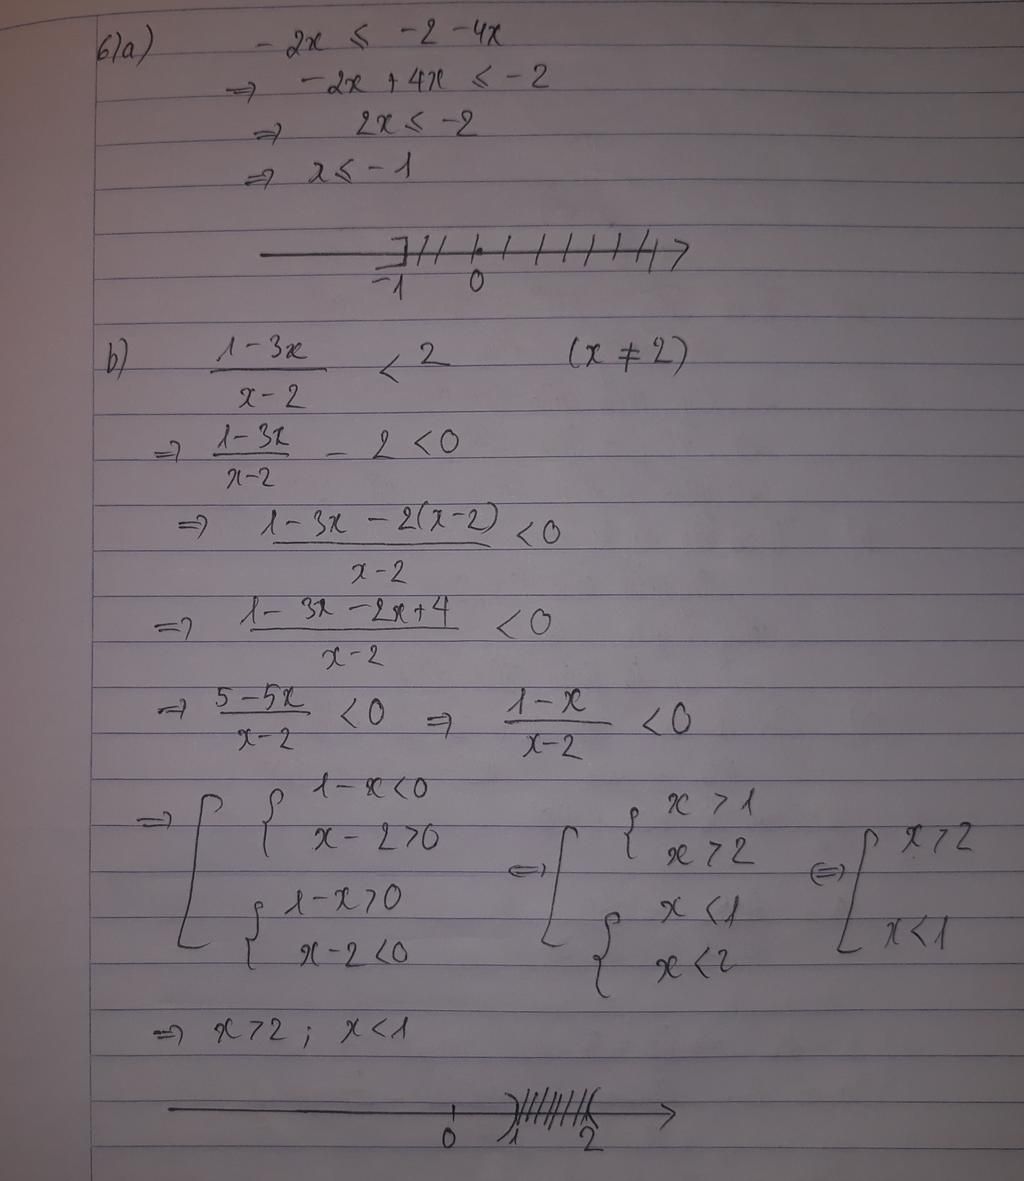 6)a) -2x ≤ -2 -4x
=> -2x + 4x ≤ -2
=> 2x ≤ -2
=> x ≤ -1
-1 0
b) \frac{1-3x}{x-2} < 2 (x ≠ 2)
=> \frac{1-3x}{x-2} - 2 < 0
=> \frac{1-3x-2(x-2)}{x-2} < 0
=> \frac{1-3x-2x+4}{x-2} < 0
=> \frac{5-5x}{x-2} < 0 => \frac{1-x}{x-2} < 0
=> [ { 1-x<0 x-2>0 { 1-x>0 x-2<0 <=> [ { x>1 x>2 { x<1 x<2 <=> [ x>2 x<1
=> x>2 ; x<1
0 1 2